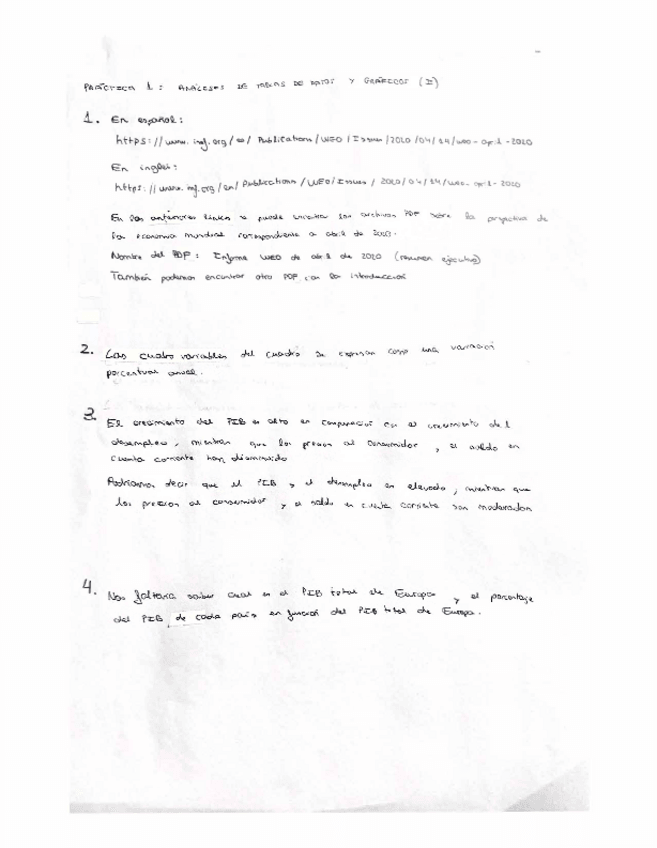 PRÁCTICA 1: ANÁLISIS DE TABLAS DE DATOS Y GRÁFICOS (I)
1. En español:
https://www.imf.org/es/Publications/WEO/Issues/2020/04/14/weo-april-2020
En inglés:
https://www.imf.org/en/Publications/WEO/Issues/2020/04/14/weo-april-2020
En los anteriores links se puede los archivos PDF sobre la de
la economía mundial correspondiente a abril de
Nombre del PDF: Informe WEO de abril de 2020 (resumen ejecutivo)
También podemos encontrar otro PDF con la introducción
2. Las cuatro variables del cuadro se expresan como una variación
porcentual anual.
3. El crecimiento del PIB es alto en comparación con el crecimiento del
desempleo, mientras que los precios al consumidor, y el saldo en
cuenta corriente han disminuido
Podríamos decir que el PIB y el desempleo es elevado, mientras que
los precios al consumidor y el saldo en cuenta corriente son moderados
4. Nos faltaría saber cual es el PIB total de Europa y el porcentaje
del PIB de cada país en función del PIB total de Europa.